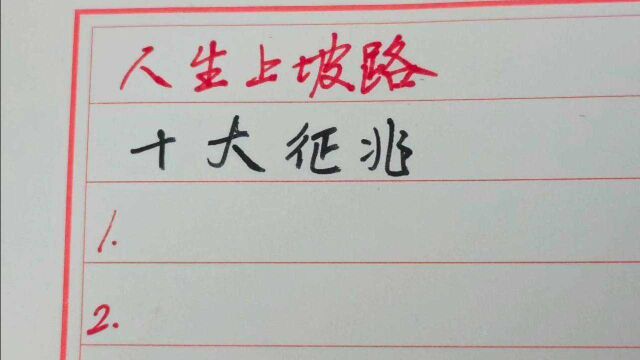 人生上坡路
十大征兆
1.
2.